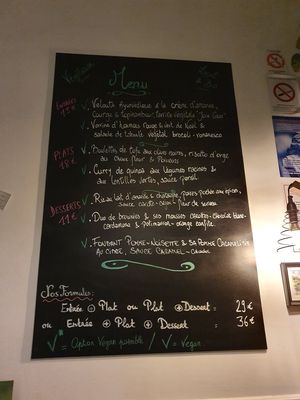 Menu
ENTRÉES
13€
Velouté Ayurvédique à la crème d'amande,
courge & topinambour, terrine végétale "Joie Gras"
Verrine d'houmous rouge & vert de Noël &
salade de lentille végétal brocoli - romanesco
PLATS
18€
Boulettes de tofu aux olives noires, risotto d'orge
au chou fleur & Poireaux
Curry de quinoa aux légumes racines &
aux lentilles vertes, sauce persil
DESSERTS
11€
Riz au lait d'amande & châtaigne, poires pochées aux épices,
sauce carote-soja-fleur de sureau
Duo de brownies & ses mousses carottes - chocolat blanc-
cardamome & potimarron - orange confite
FONDANT POMME-NOISETTE & SA POMME CARAMELISÉE
AU CIDRE, SAUCE CARAMEL-
Nos Formules:
Entrée ⊕ Plat ou Plat ⊕ Dessert = 29€
ou Entrée ⊕ Plat ⊕ Dessert = 36€
V* = Option Vegan possible / V = Vegan